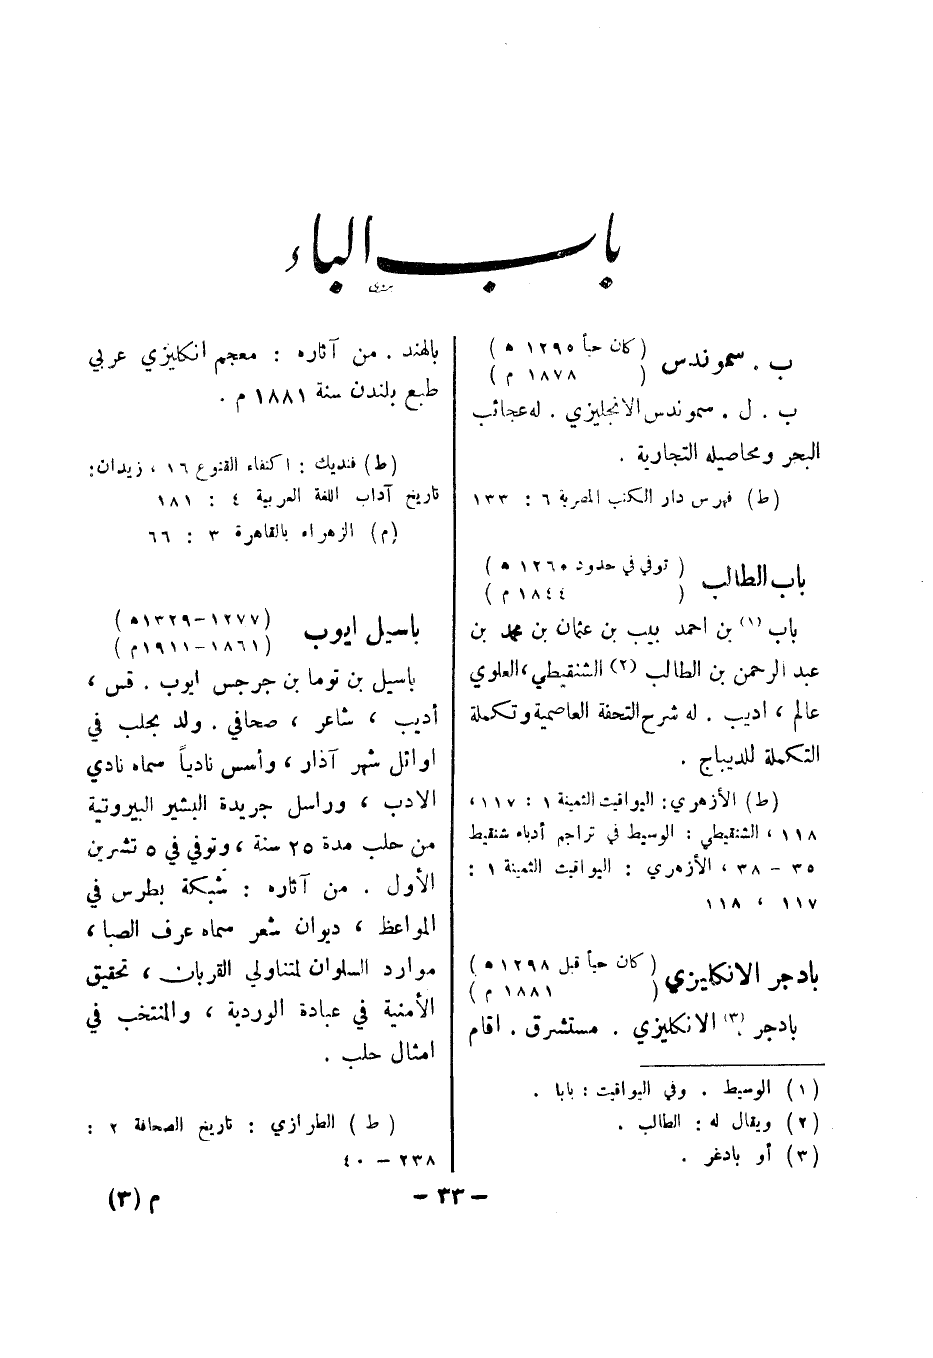 باب الباء
ب . سموندس
( كان حياً ١٢٩٥ هـ )
( ١٨٧٨ م )
ب . ل . سموندس الانجليزي . له عجائب
البحر ومحاصيله التجارية .
(ط) فهرس دار الكتب المصرية ٦ : ١٣٣
باب الطالب
( توفي في حدود ١٢٦٠ هـ )
( ١٨٤٤ م )
باب (١) بن احمد بيب بن عثمان بن محمد بن
عبد الرحمن بن الطالب (٢) الشنقيطي ، العلوي
عالم ، اديب . له شرح التحفة العاصمية وتكملة
التكملة للديباج .
(ط) الأزهري : اليواقيت الثمينة ١ : ١١٧ ،
١١٨ ، الشنقيطي : الوسيط في تراجم أدباء شنقيط
٣٥ – ٣٨ ، الأزهري : اليواقيت الثمينة ١ :
١١٧ ، ١١٨
بادجر الانكليزي
( كان حياً قبل ١٢٩٨ هـ )
( ١٨٨١ م )
بادجر (٣) الانكليزي . مستشرق . اقام
(١) الوسيط . وفي اليواقيت : بابا .
(٢) ويقال له : الطالب .
(٣) أو بادغر .
بالهند . من آثاره : معجم انكليزي عربي
طبع بلندن سنة ١٨٨١ م .
(ط) فنديك : اكتفاء القنوع ١٦ ، زيدان :
تاريخ آداب اللغة العربية ٤ : ١٨١
(م) الزهراء بالقاهرة ٣ : ٦٦
باسيل ايوب
(١٢٧٧–١٣٢٩ هـ )
(١٨٦١–١٩١١ م )
باسيل بن توما بن جرجس ايوب . قس ،
أديب ، شاعر ، صحافي . ولد بحلب في
اوائل شهر آذار ، وأسس نادياً سماه نادي
الادب ، وراسل جريدة البشير البيروتية
من حلب مدة ٢٥ سنة ، وتوفي في ٥ تشرين
الأول . من آثاره : شبكة بطرس في
المواعظ ، ديوان شعر سماه عرف الصبا ،
موارد السلوان لمتناولي القربان ، تحقيق
الأمنية في عبادة الوردية ، والمنتخب في
امثال حلب .
( ط ) الطرازي : تاريخ الصحافة ٢ :
٢٣٨ – ٤٠
– ٣٣ –
م (٣)